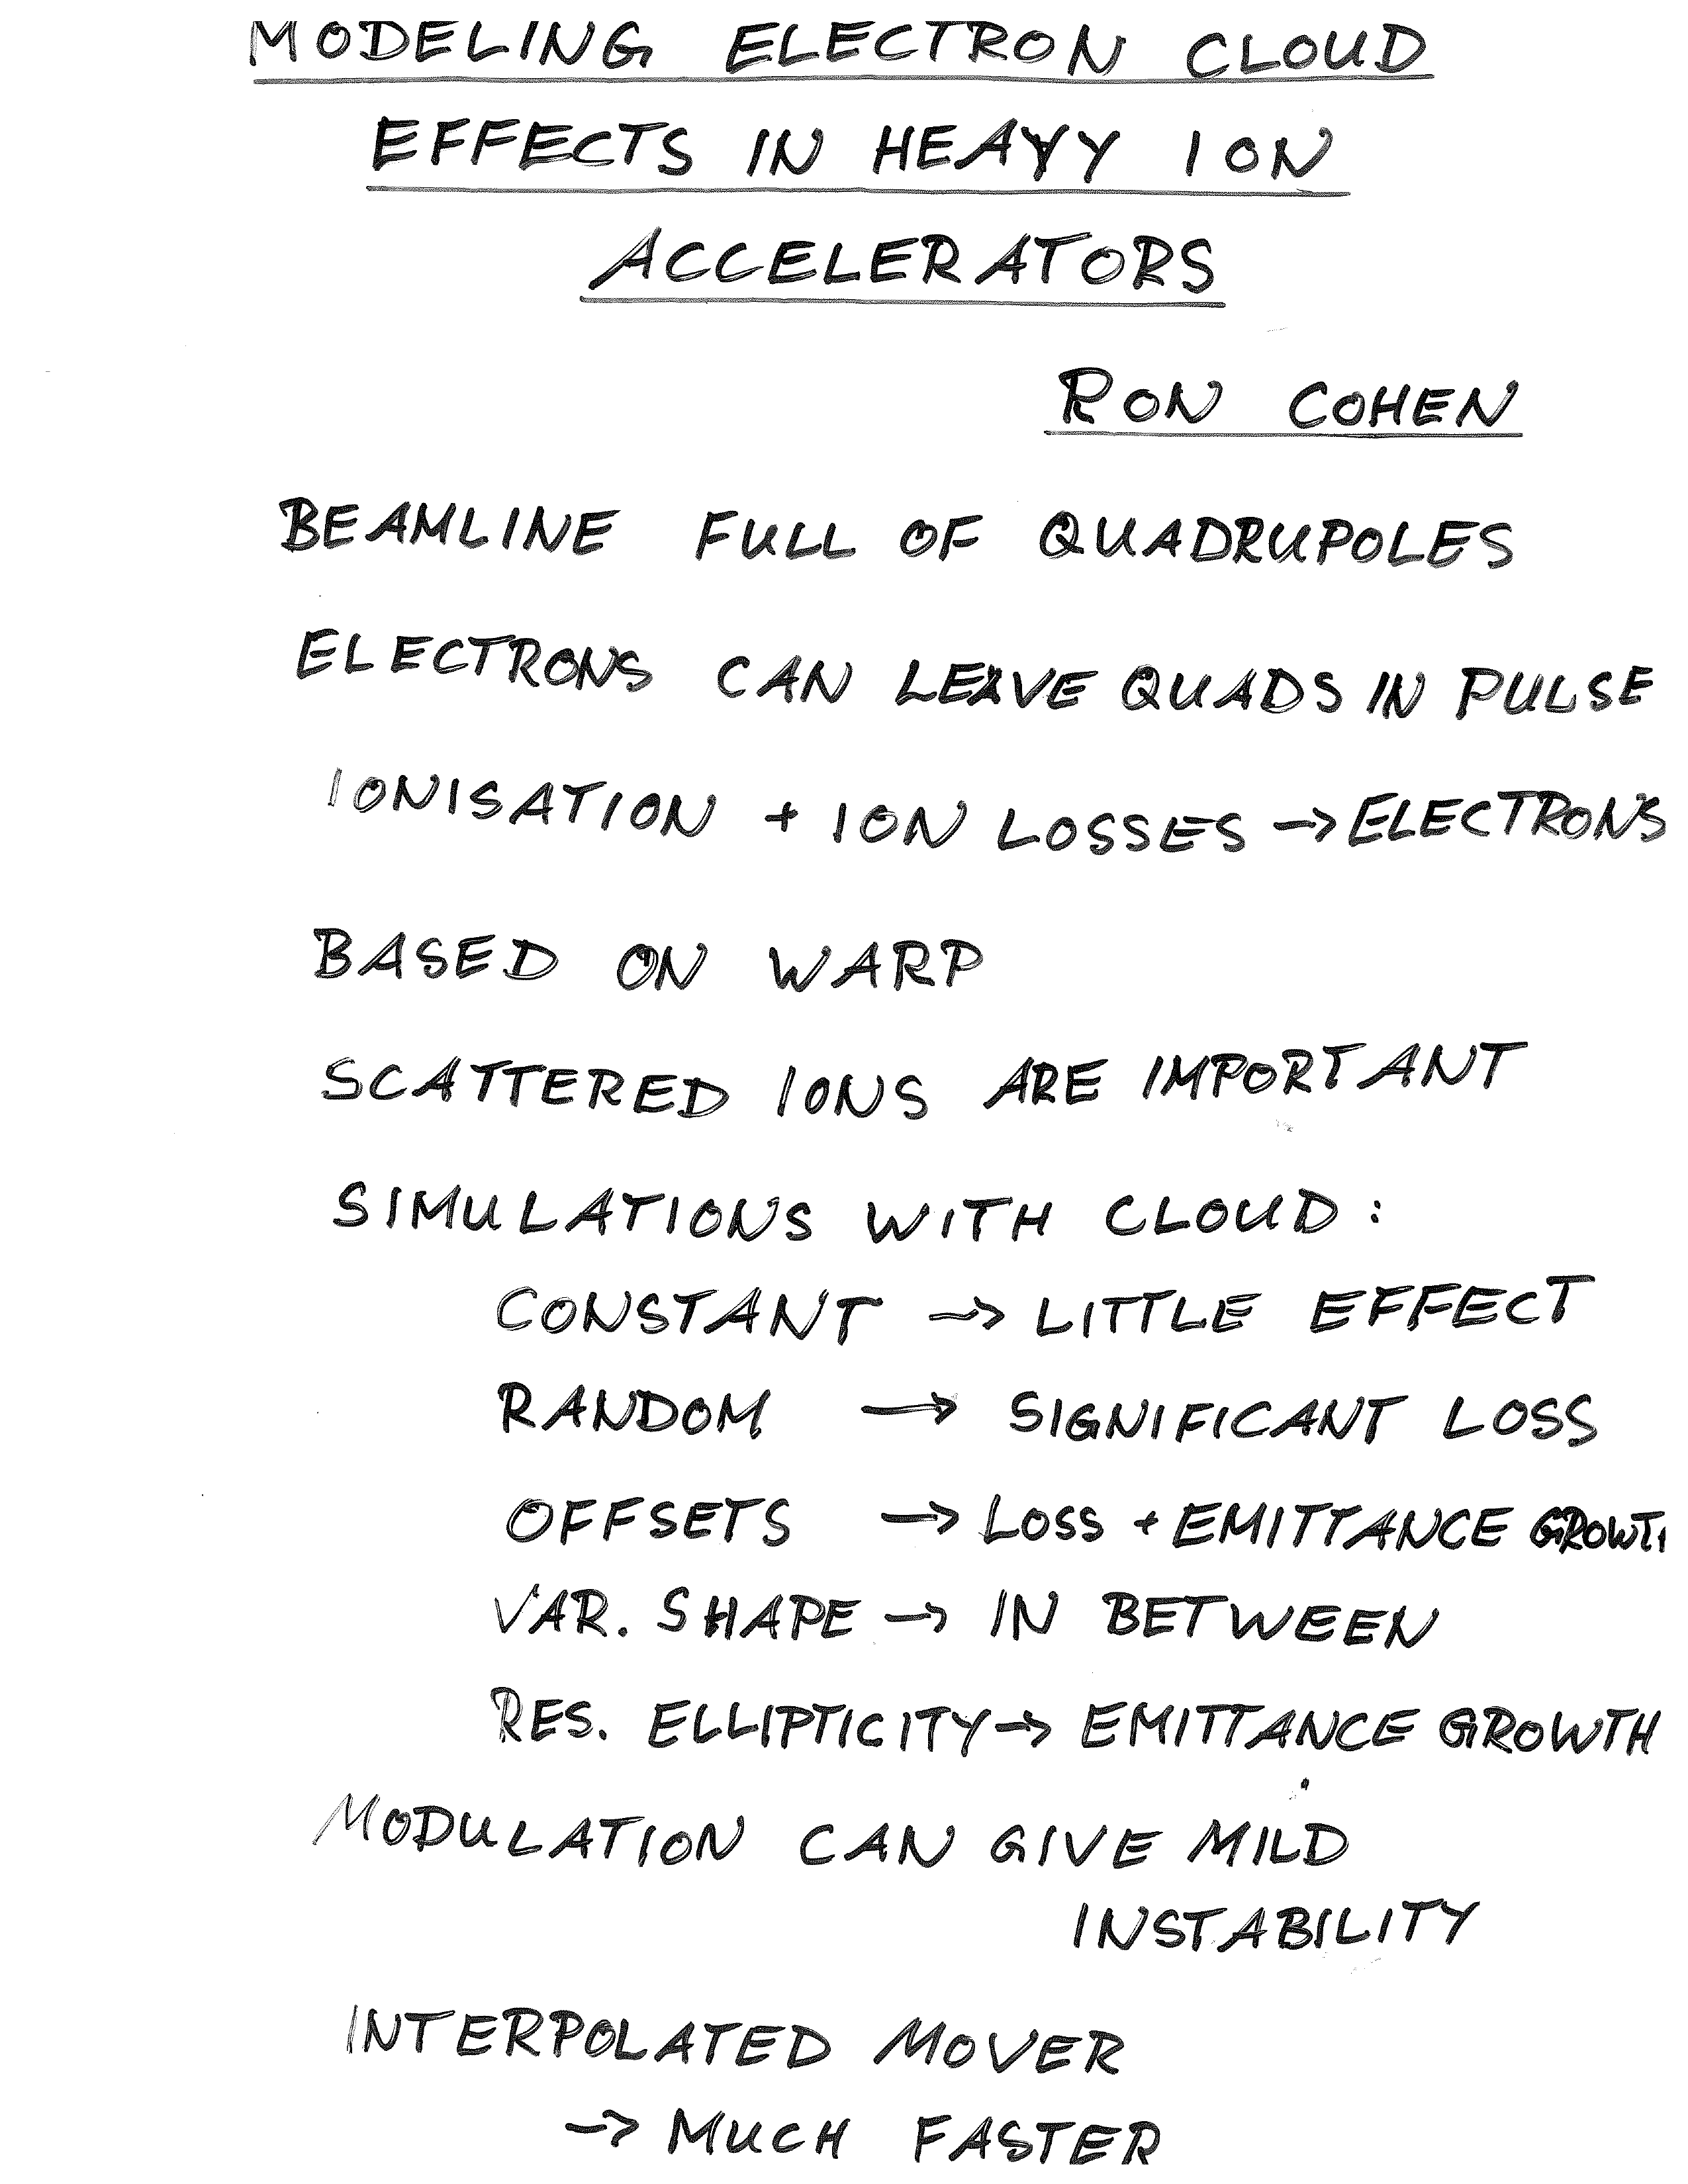 MODELING ELECTRON CLOUD
EFFECTS IN HEAVY ION
ACCELERATORS
RON COHEN
BEAMLINE FULL OF QUADRUPOLES
ELECTRONS CAN LEAVE QUADS IN PULSE
IONISATION + ION LOSSES -> ELECTRONS
BASED ON WARP
SCATTERED IONS ARE IMPORTANT
SIMULATIONS WITH CLOUD:
CONSTANT -> LITTLE EFFECT
RANDOM -> SIGNIFICANT LOSS
OFFSETS -> LOSS + EMITTANCE GROWTH
VAR. SHAPE -> IN BETWEEN
RES. ELLIPTICITY -> EMITTANCE GROWTH
MODULATION CAN GIVE MILD
INSTABILITY
INTERPOLATED MOVER
-> MUCH FASTER